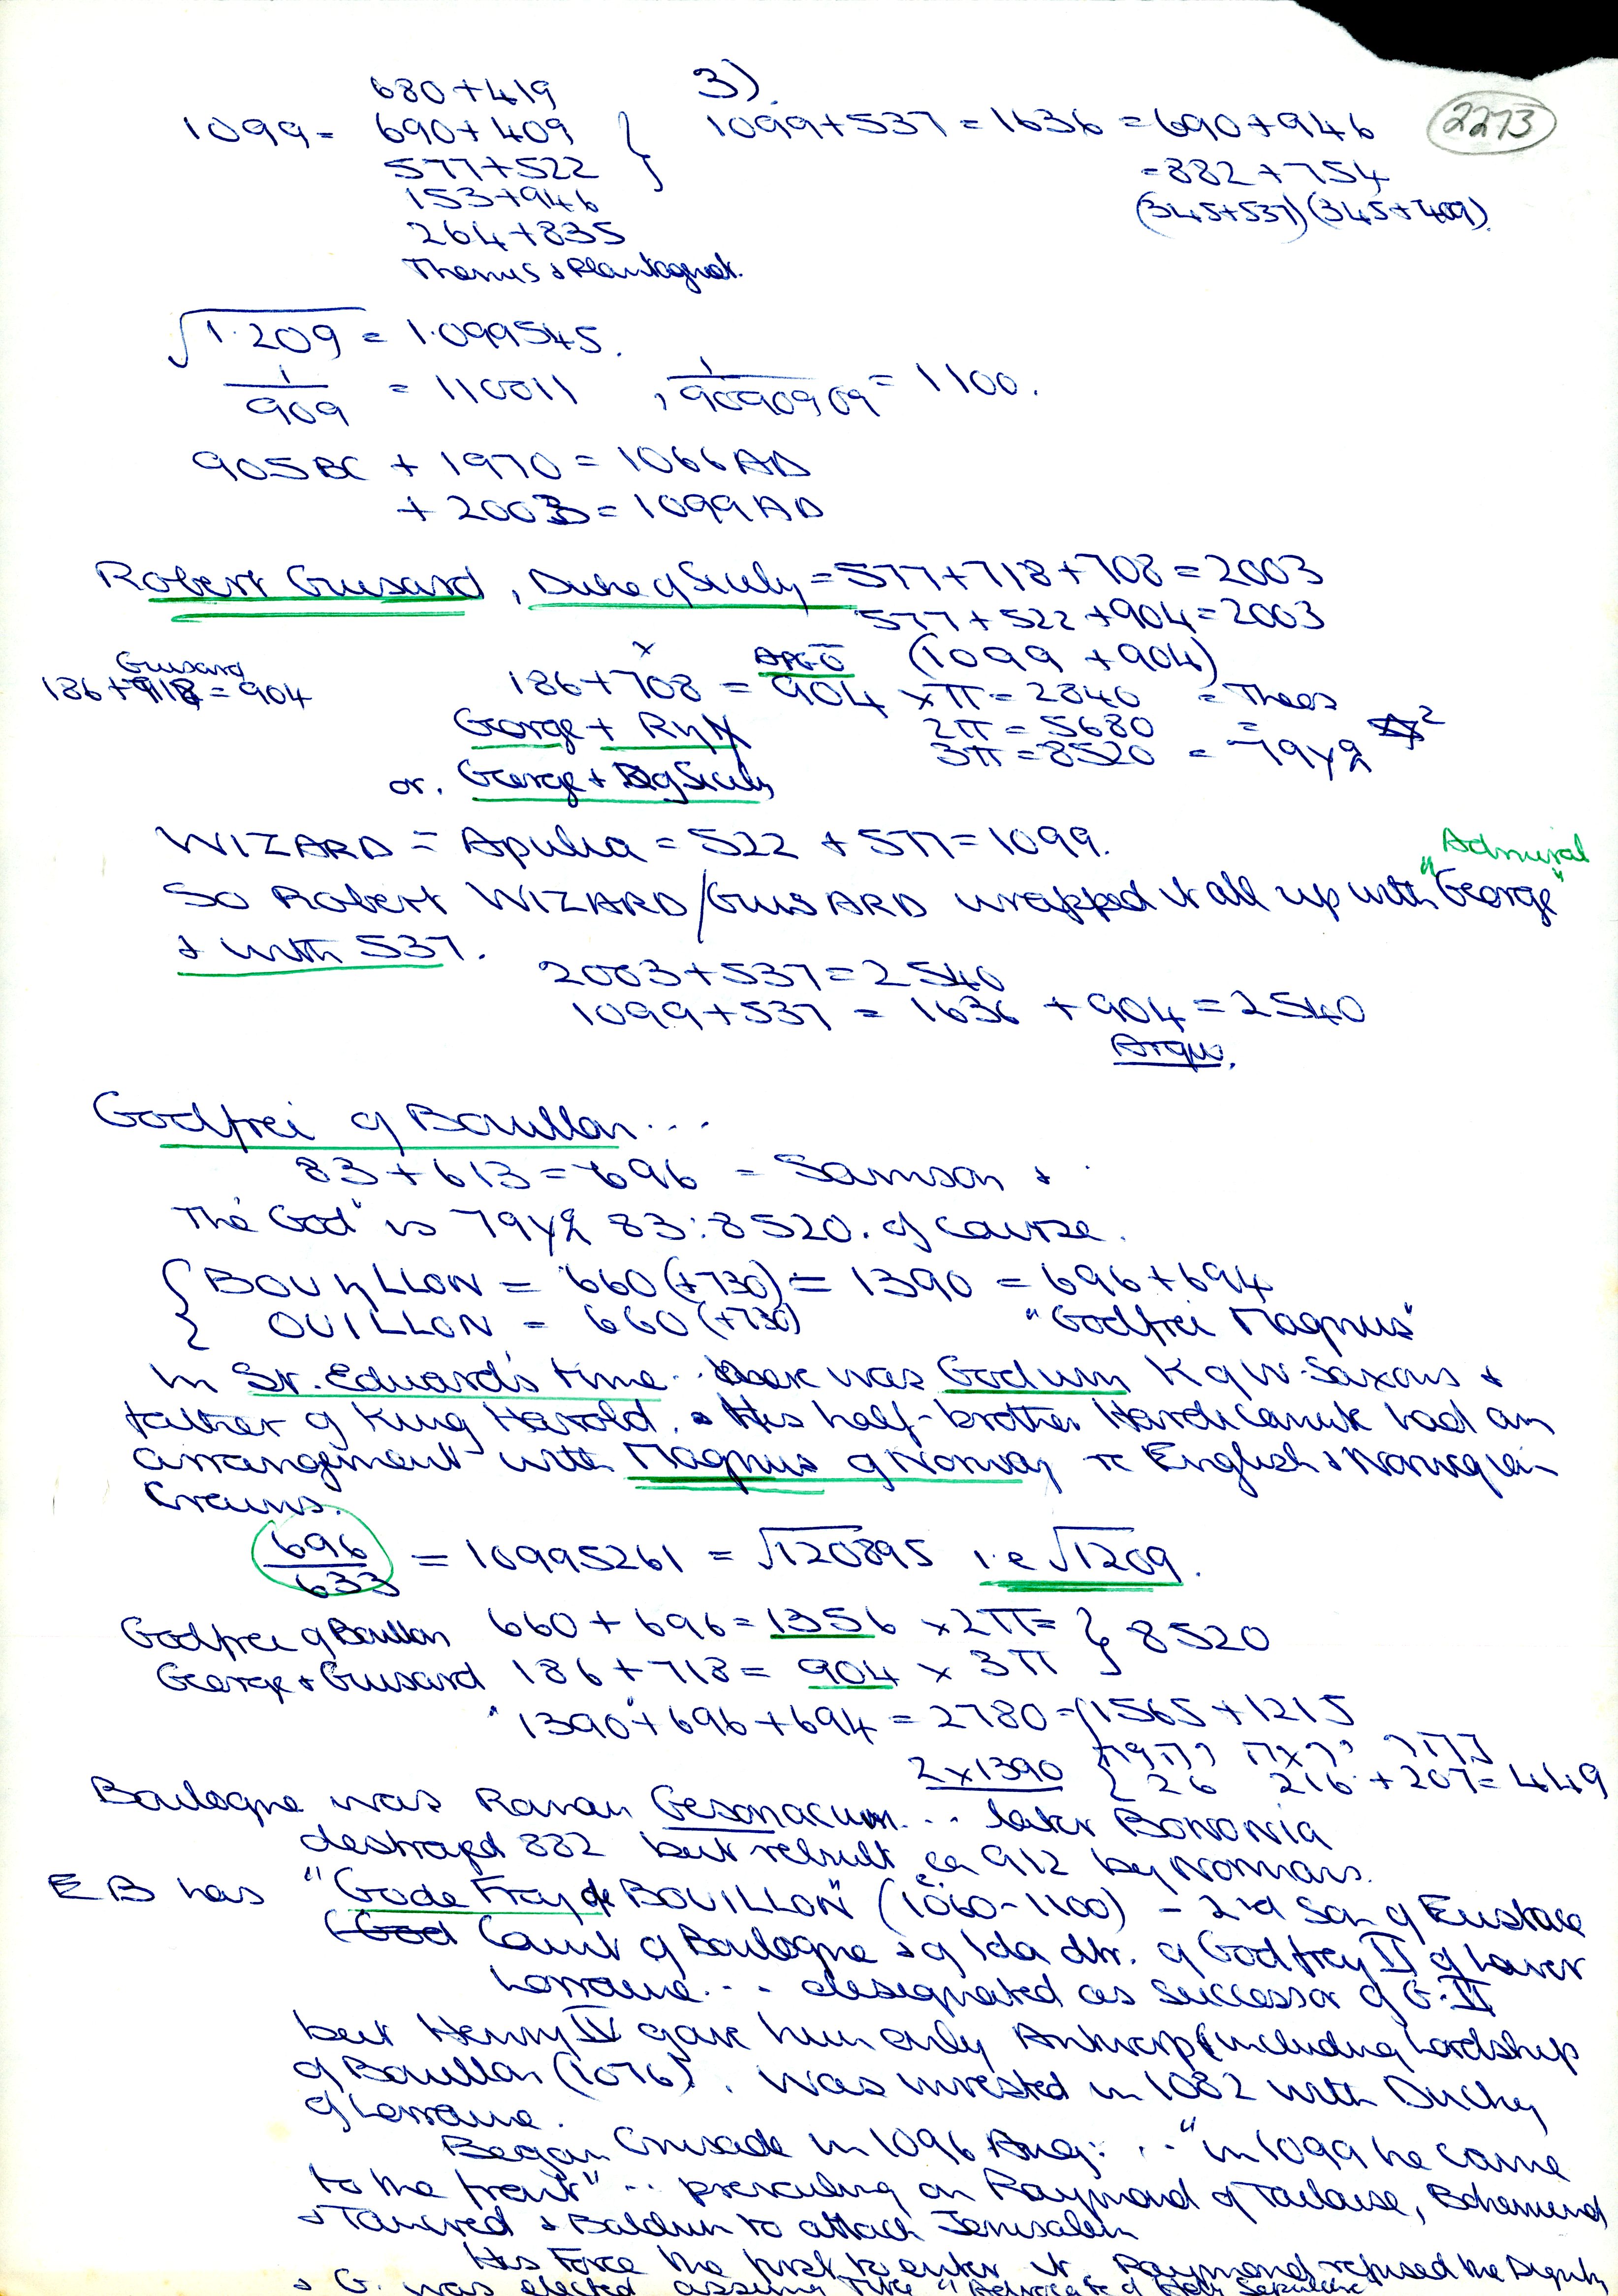 3)
2273
680+419
1099 = 690+409 } 1099+537 = 1636 = 690+946
577+522 = 882+754
153+946 (345+537)(345+409)
264+835
Thomus & Plantagnet.
√1.209 = 1.099545.
1/909 = 110011 , 1/9090909 = 1100.
905BC + 1970 = 1066AD
+ 2003 = 1099AD
Robert Guisard, Duke of Sicily = 577+718+708 = 2003
577+522+904=2003
(1099 +904)
Guisard
186+718 = 904
186+708 = 904 xπ = 2840 = Thees
George + RηX 2π = 5680 =
3π = 8520 =
or. George + D of Sicily
WIZARD = Apulia = 522 + 577 = 1099.
So Robert WIZARD/GUISARD wrapped it all up with "Admiral George"
& with 537.
2003+537=2540
1099+537 = 1636 +904 = 2540
Argw.
Godfrei of Bouillon...
83+613=696 = Samson &
The "God" is 83:8520. of course.
{ BOUηLLON = 660 (+730) = 1390 = 696+694
{ OUILLON = 660 (+730) "Godfrei Magnus"
In St. Edward's time.. there was Godwin K of W. Saxons &
father of King Harold. & His half-brother Hardicanute had an
arrangement with Magnus of Norway re English & Norwegian
Crowns.
696/633 = 10995261 = √120895 i.e √1209.
Godfrei of Bouillon 660+696=1356 x2π= } 8520
George & Guisard 186+718= 904 x 3π
1390+696+694 = 2780 = {1565+1215
2x1390 { 26 216 + 207 = 449
Boulogne was Roman Gesonacum... later Bononia
destroyed 882 but rebuilt ca 912 by Normans.
EB has "Gode Froy de BOUILLON" (1060-1100) - 2nd Son of Eustace
Count of Boulogne & of Ida dtr. of Godfrey II of Lower
Lorraine... designated as successor of G.II
but Henry IV gave him only Antwerp (including Lordship
of Bouillon (1076). Was invested in 1082 with Duchy
of Lorraine.
Began Crusade in 1096 Aug: ..."in 1099 he came
to the front"... prevailing on Raymond of Toulouse, Bohemund
& Tancred & Baldwin to attack Jerusalem
His Force the first to enter it. Raymond refused the Dignity
& G. was elected assuming Title "Advocate of Holy Sepulchre